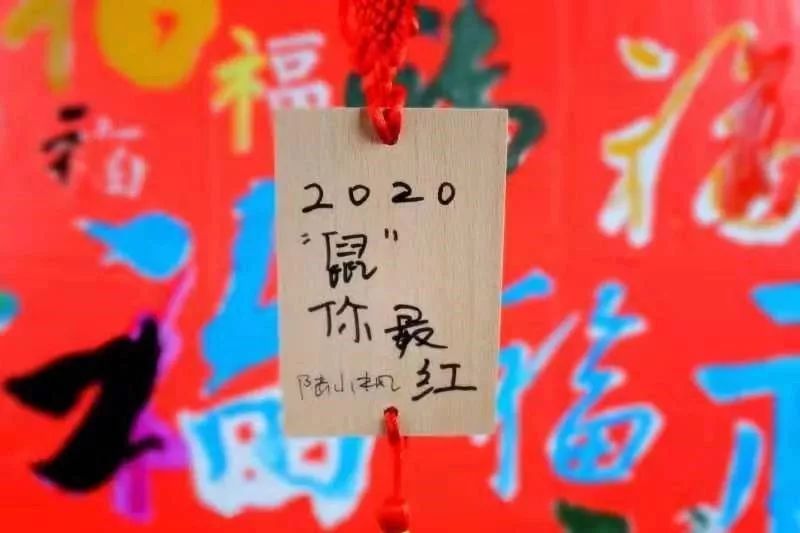 2020
"鼠"
你最
红
福
福
福
福
福
福